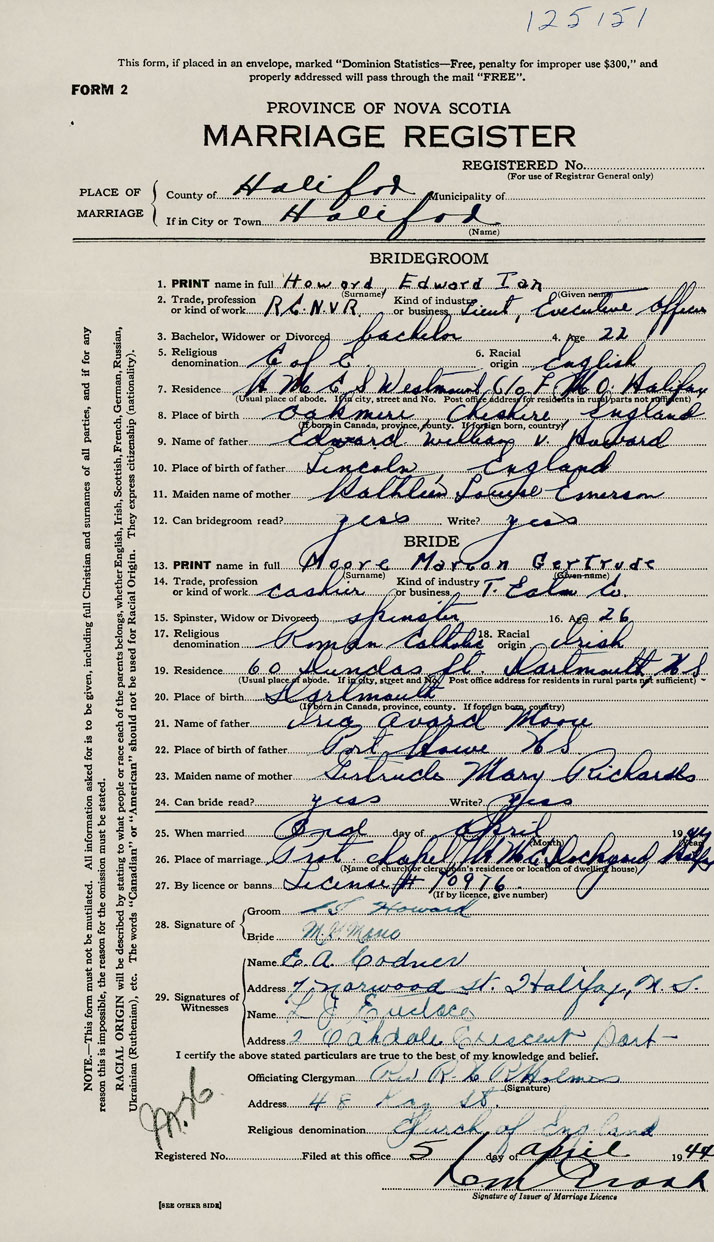 125151
This form, if placed in an envelope, marked "Dominion Statistics—Free, penalty for improper use $300," and
properly addressed will pass through the mail "FREE".
FORM 2
PROVINCE OF NOVA SCOTIA
MARRIAGE REGISTER
REGISTERED No.
(For use of Registrar General only)
PLACE OF MARRIAGE
County of Halifax Municipality of
If in City or Town Halifax
(Name)
BRIDEGROOM
1. PRINT name in full Howard, Edward Ian
(Surname) (Given name)
2. Trade, profession or kind of work R.C.N.V.R. Kind of industry or business Lieut, Executive Officer
3. Bachelor, Widower or Divorced bachelor 4. Age 22
5. Religious denomination C of E 6. Racial origin English
7. Residence H M C S Westmount, C/o F.M.O. Halifax
(Usual place of abode. If in city, street and No. Post office address for residents in rural parts not sufficient)
8. Place of birth Oakmere Cheshire England
(If born in Canada, province, county. If foreign born, country)
9. Name of father Edward William V. Howard
10. Place of birth of father Lincoln, England
11. Maiden name of mother Kathleen Louise Emerson
12. Can bridegroom read? yes Write? yes
BRIDE
13. PRINT name in full Moore Marion Gertrude
(Surname) (Given name)
14. Trade, profession or kind of work cashier Kind of industry or business T. Eaton Co.
15. Spinster, Widow or Divorced spinster 16. Age 26
17. Religious denomination Roman Catholic 18. Racial origin Irish
19. Residence 60 Dundas St. Dartmouth N.S
(Usual place of abode. If in city, street and No. Post office address for residents in rural parts not sufficient)
20. Place of birth Dartmouth
(If born in Canada, province, county. If foreign born, country)
21. Name of father Avard Moore
22. Place of birth of father Port Howe N.S.
23. Maiden name of mother Gertrude Mary Richards
24. Can bride read? yes Write? yes
25. When married 2nd day of April 1944
(Month) (Year)
26. Place of marriage Prot. chapel H M C Dockyard Halifax
(Name of church or clergyman's residence or location of dwelling house)
27. By licence or banns License # 70976
(If by licence, give number)
28. Signature of
Groom Howard
Bride M.G. Moore
29. Signatures of Witnesses
Name E. A. Codner
Address 7 Norwood St. Halifax, N.S.
Name L J
Address 2 Oakdale Crescent Dart
I certify the above stated particulars are true to the best of my knowledge and belief.
Officiating Clergyman Rev Holmes
(Signature)
Address 48 Kay St.
Religious denomination Church of England
Registered No. Filed at this office 5 day of April 1944
Signature of Issuer of Marriage Licence
[SEE OTHER SIDE]
NOTE.—This form must not be mutilated. All information asked for is to be given, including full Christian and surnames of all parties, and if for any
reason this is impossible, the reason for the omission must be stated.
RACIAL ORIGIN will be described by stating to what people or race each of the parents belongs, whether English, Irish, Scottish, French, German, Russian,
Ukrainian (Ruthenian), etc. The words "Canadian" or "American" should not be used for Racial Origin. They express citizenship (nationality).